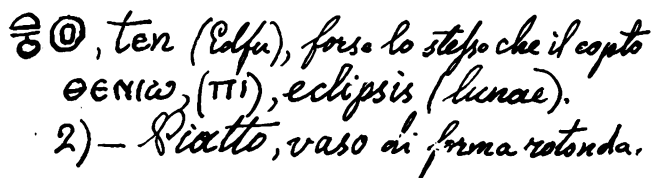 , ten (Edfu), forse lo stesso che il copto
ⲑⲉⲛⲓⲱ, (ⲡⲓ), eclipsis (lunae).
2) — Piatto, vaso di forma rotonda.